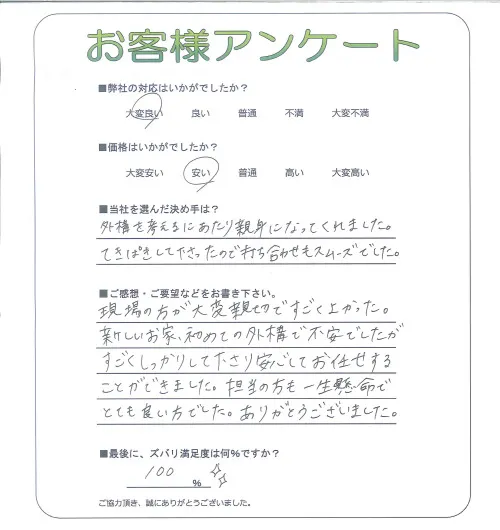 お客様アンケート
■弊社の対応はいかがでしたか？
大変良い 良い 普通 不満 大変不満
■価格はいかがでしたか？
大変安い 安い 普通 高い 大変高い
■当社を選んだ決め手は？
外構を考えるにあたり親身になってくれました。
てきぱきして下さったので打ち合わせもスムーズでした。
■ご感想・ご要望などをお書き下さい。
現場の方が大変親切ですごくよかった。
新しいお家、初めての外構で不安でしたが
すごくしっかりして下さり安心してお任せする
ことができました。担当の方も一生懸命で
とても良い方でした。ありがとうございました。
■最後に、ズバリ満足度は何%ですか？
100 %
ご協力頂き、誠にありがとうございました。